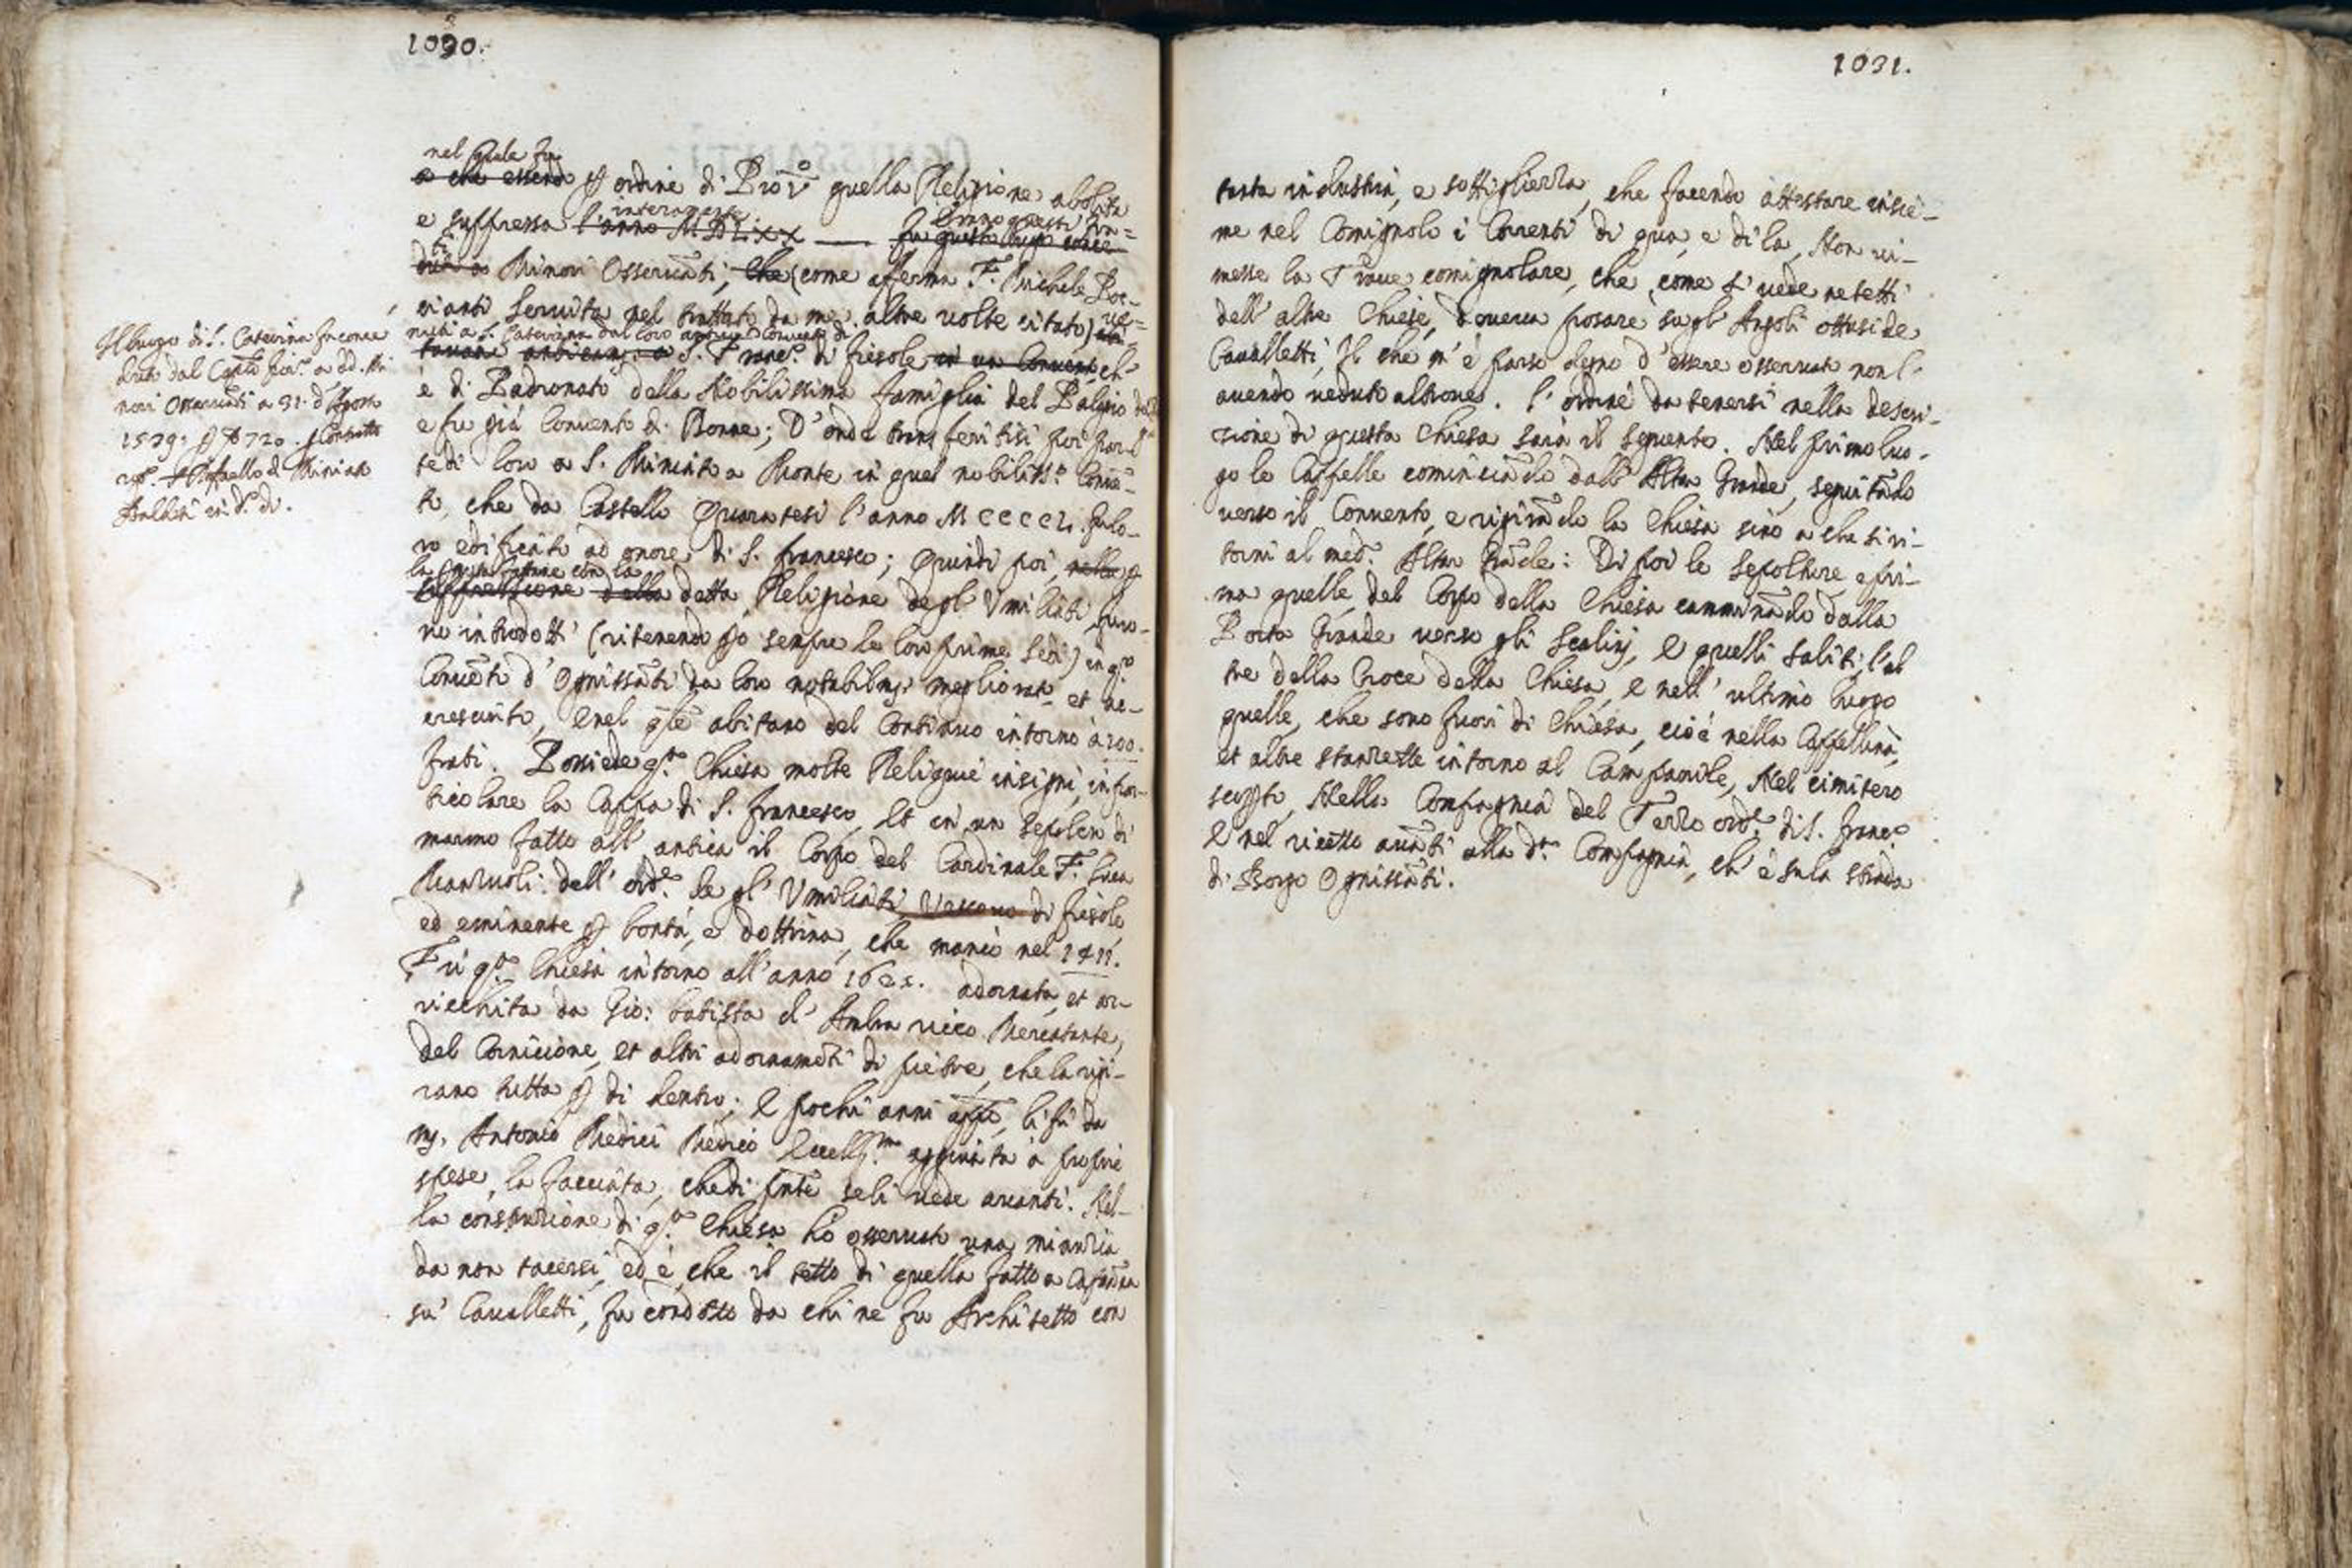 1030.
nel quale fu
o che essendo p ordine di Pio V.o quella Religione abolita
interamente
e suppressa l'anno MDLXX
Minori Osservanti; che (come afferma F. Michele Poc-
cianti Servita nel trattato da me altre volte citato)
nuti a S. Caterina dal loro antico Convento di
S. Franc.o di fiesole in un Convento ch'
è di Padronato della Nobilissima famiglia del Palagio
e fu già Convento di Donne; D'onde transferitisi poi
te di loro a S. Miniato a Monte in quel nobiliss.o Convē-
to, che da Castello Quaratesi l'anno MCCCCLI. gulo-
ro edificato ad onore di S. francesco; Quindi poi, nella
suppressione della detta Religione degl' Umiliati furo-
no introdotti (ritenendo p.ò sempre le loro prime Sedi) in q.o
Convēto d'Ognissāti da loro notabilm.e megliorato et ac-
cresciuto, e nel q̄le abitano del Continuo intorno à 200.
frati. Possiede q.ta Chiesa molte Reliquie insigni, in par-
ticolare la Cappa di S. francesco, et in un sepolcro di
marmo fatto all' antica il Corpo del Cardinale F. Luca
Manzuoli dell' ord.e de gl' Umiliati, Vescovo di fiesole
ed eminente p bontà, e dottrina, che mancò nel 1411.
Fù q.ta Chiesa intorno all'anno adornata, et ar-
ricchita da Gio: batista d' Ambra ricco Mercatante,
del Cornicione, et altri adornamēti di pietre, che la rigi-
rano tutta p di dentro; e pochi anni app̄o, li fù da
m. Antonio Medici Medico Eccell.mo aggiūta à proprie
spese, la facciata, che di p̄nte seli vede avanti. Nel-
la construzione di q.ta Chiesa hò osservato una minuzia
da non tacersi, ed è, che il tetto di quella fatto a Capāna
su' Cavalletti, fu condotto da chi ne fu Architetto con
Il luogo di S. Caterina fu conce
duto dal
nori Osservāti a 31. d'Agosto
1539: p 720.
Raffaello di Miniato
in d.o dì.
1031.
tanta industria, e sottigliezza, che facendo attestare insie-
me nel Comignolo i Correnti di qua, e di la, Non vi-
messe la Trave comignolare, che, come si vede ne tetti
dell' altre Chiese, doveva posare su gl' Angoli ottusi de
Cavalletti; Il che m' è parso degno d'essere osservato non l'
avendo veduto altrove. L' ordine da tenersi nella descri-
zione di questa Chiesa sarà il seguente. Nel primo luo-
go le Cappelle cominciādo dall' Altar Grande, seguitādo
verso il Convento, e rigirādo la Chiesa sino a che si ri-
torni al med.o Altar Grāde: Di poi le sepolture, e pri-
ma quelle del Corpo della Chiesa camminādo dalla
Porta Grande verso gli Scalinj, e quelli saliti, l'al
tre della Croce della Chiesa, e nell' ultimo luogo
quelle, che sono fuori di Chiesa, cioè nella Cappellina,
et altre stanzette intorno al Campanile, Nel cimitero
scop.to, Nella Compagnia del Terzo ord.e di S. Franc.o
e nel ricetto avāti alla d.ta Compagnia, ch' è su la strada
di Borgo Ognissāti.